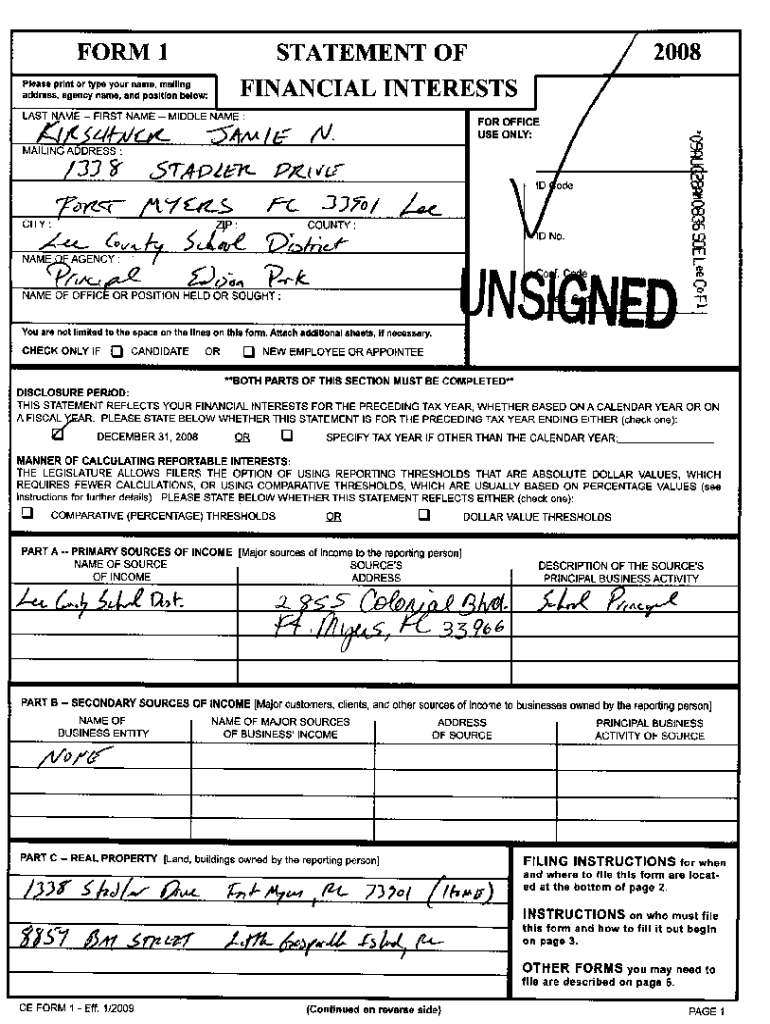 FORM 1 STATEMENT OF 2008
FINANCIAL INTERESTS
Please print or type your name, mailing
address, agency name, and position below:
LAST NAME – FIRST NAME – MIDDLE NAME :
KIRSCHNER JAMIE N.
MAILING ADDRESS :
1338 STADLER DRIVE
FORT MYERS FL 33901 Lee
CITY : ZIP : COUNTY :
Lee County School District
NAME OF AGENCY :
Principal Edison Park
NAME OF OFFICE OR POSITION HELD OR SOUGHT :
You are not limited to the space on the lines on this form. Attach additional sheets, if necessary.
CHECK ONLY IF ☐ CANDIDATE OR ☐ NEW EMPLOYEE OR APPOINTEE
FOR OFFICE
USE ONLY:
ID Code
ID No.
Conf. Code
UNSIGNED
'09AUG28AM0836 SOE Lee Co Fl
**BOTH PARTS OF THIS SECTION MUST BE COMPLETED**
DISCLOSURE PERIOD:
THIS STATEMENT REFLECTS YOUR FINANCIAL INTERESTS FOR THE PRECEDING TAX YEAR, WHETHER BASED ON A CALENDAR YEAR OR ON
A FISCAL YEAR. PLEASE STATE BELOW WHETHER THIS STATEMENT IS FOR THE PRECEDING TAX YEAR ENDING EITHER (check one):
☑ DECEMBER 31, 2008 OR ☐ SPECIFY TAX YEAR IF OTHER THAN THE CALENDAR YEAR:
MANNER OF CALCULATING REPORTABLE INTERESTS:
THE LEGISLATURE ALLOWS FILERS THE OPTION OF USING REPORTING THRESHOLDS THAT ARE ABSOLUTE DOLLAR VALUES, WHICH
REQUIRES FEWER CALCULATIONS, OR USING COMPARATIVE THRESHOLDS, WHICH ARE USUALLY BASED ON PERCENTAGE VALUES (see
instructions for further details) PLEASE STATE BELOW WHETHER THIS STATEMENT REFLECTS EITHER (check one):
☐ COMPARATIVE (PERCENTAGE) THRESHOLDS OR ☐ DOLLAR VALUE THRESHOLDS
PART A -- PRIMARY SOURCES OF INCOME [Major sources of income to the reporting person]
NAME OF SOURCE SOURCE'S DESCRIPTION OF THE SOURCE'S
OF INCOME ADDRESS PRINCIPAL BUSINESS ACTIVITY
Lee County School Dist. 2855 Colonial Blvd. School Principal
Ft. Myers, FL 33966
PART B – SECONDARY SOURCES OF INCOME [Major customers, clients, and other sources of income to businesses owned by the reporting person]
NAME OF NAME OF MAJOR SOURCES ADDRESS PRINCIPAL BUSINESS
BUSINESS ENTITY OF BUSINESS' INCOME OF SOURCE ACTIVITY OF SOURCE
NONE
PART C – REAL PROPERTY [Land, buildings owned by the reporting person]
1338 Stadler Drive Fort Myers, FL 33901 (HOME)
8857 STREET Little Gasparilla Island, FL
FILING INSTRUCTIONS for when
and where to file this form are locat-
ed at the bottom of page 2.
INSTRUCTIONS on who must file
this form and how to fill it out begin
on page 3.
OTHER FORMS you may need to
file are described on page 6.
CE FORM 1 - Eff. 1/2009 (Continued on reverse side) PAGE 1